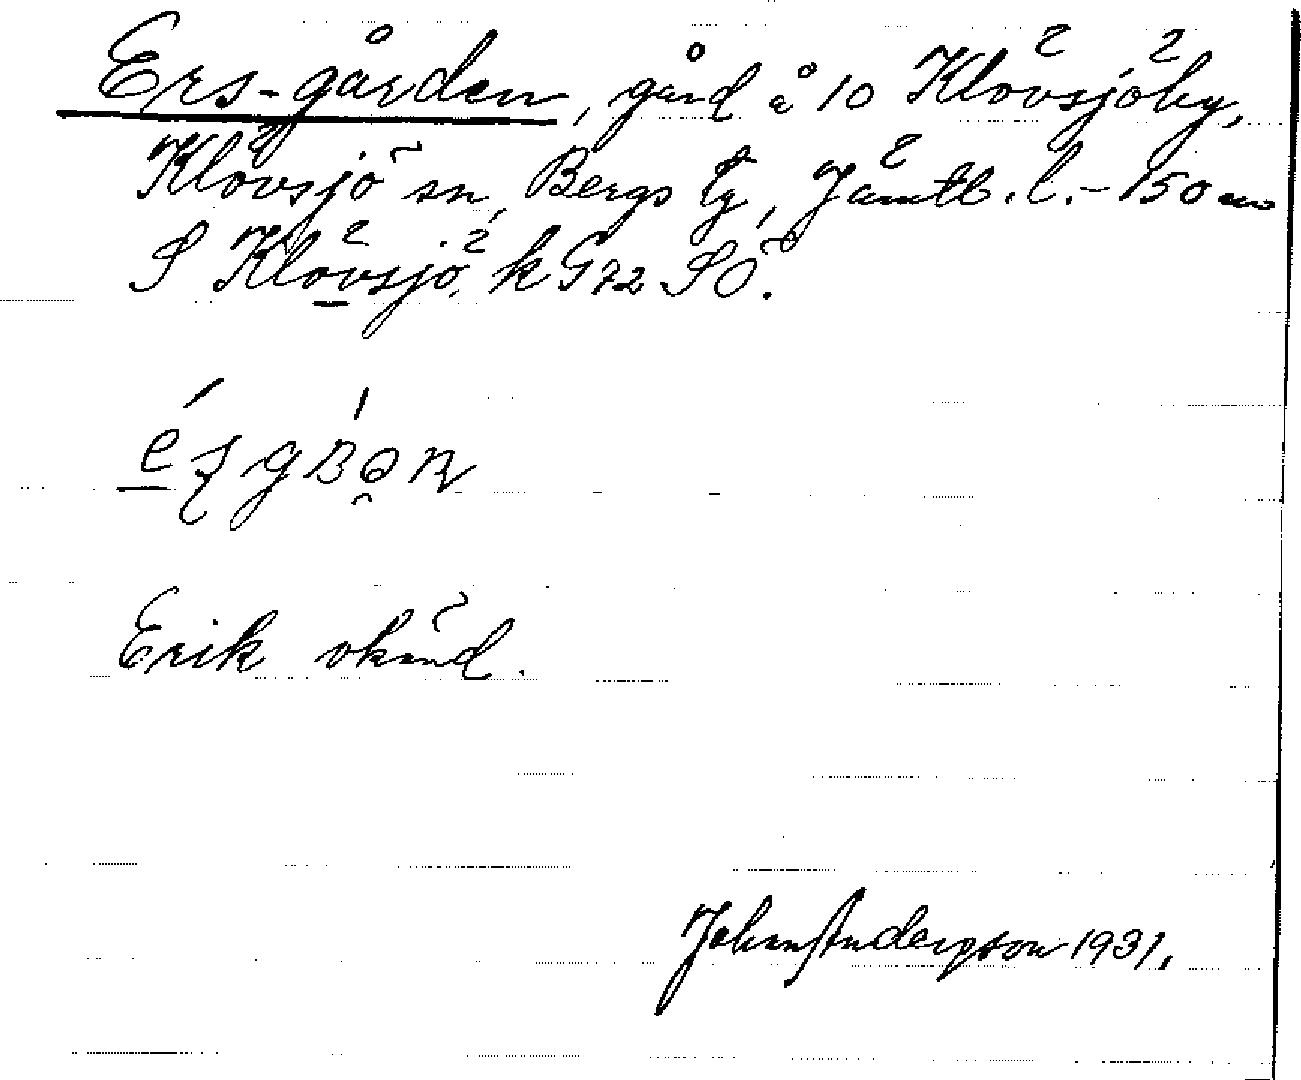 Ers-gården, gård å 10 Klövsjöby,
Klövsjö sn, Bergs tg, Jämtl. l. – 150 m
S Klövsjö k G72 SÖ.
Erik okänd.
John Andersson 1931.